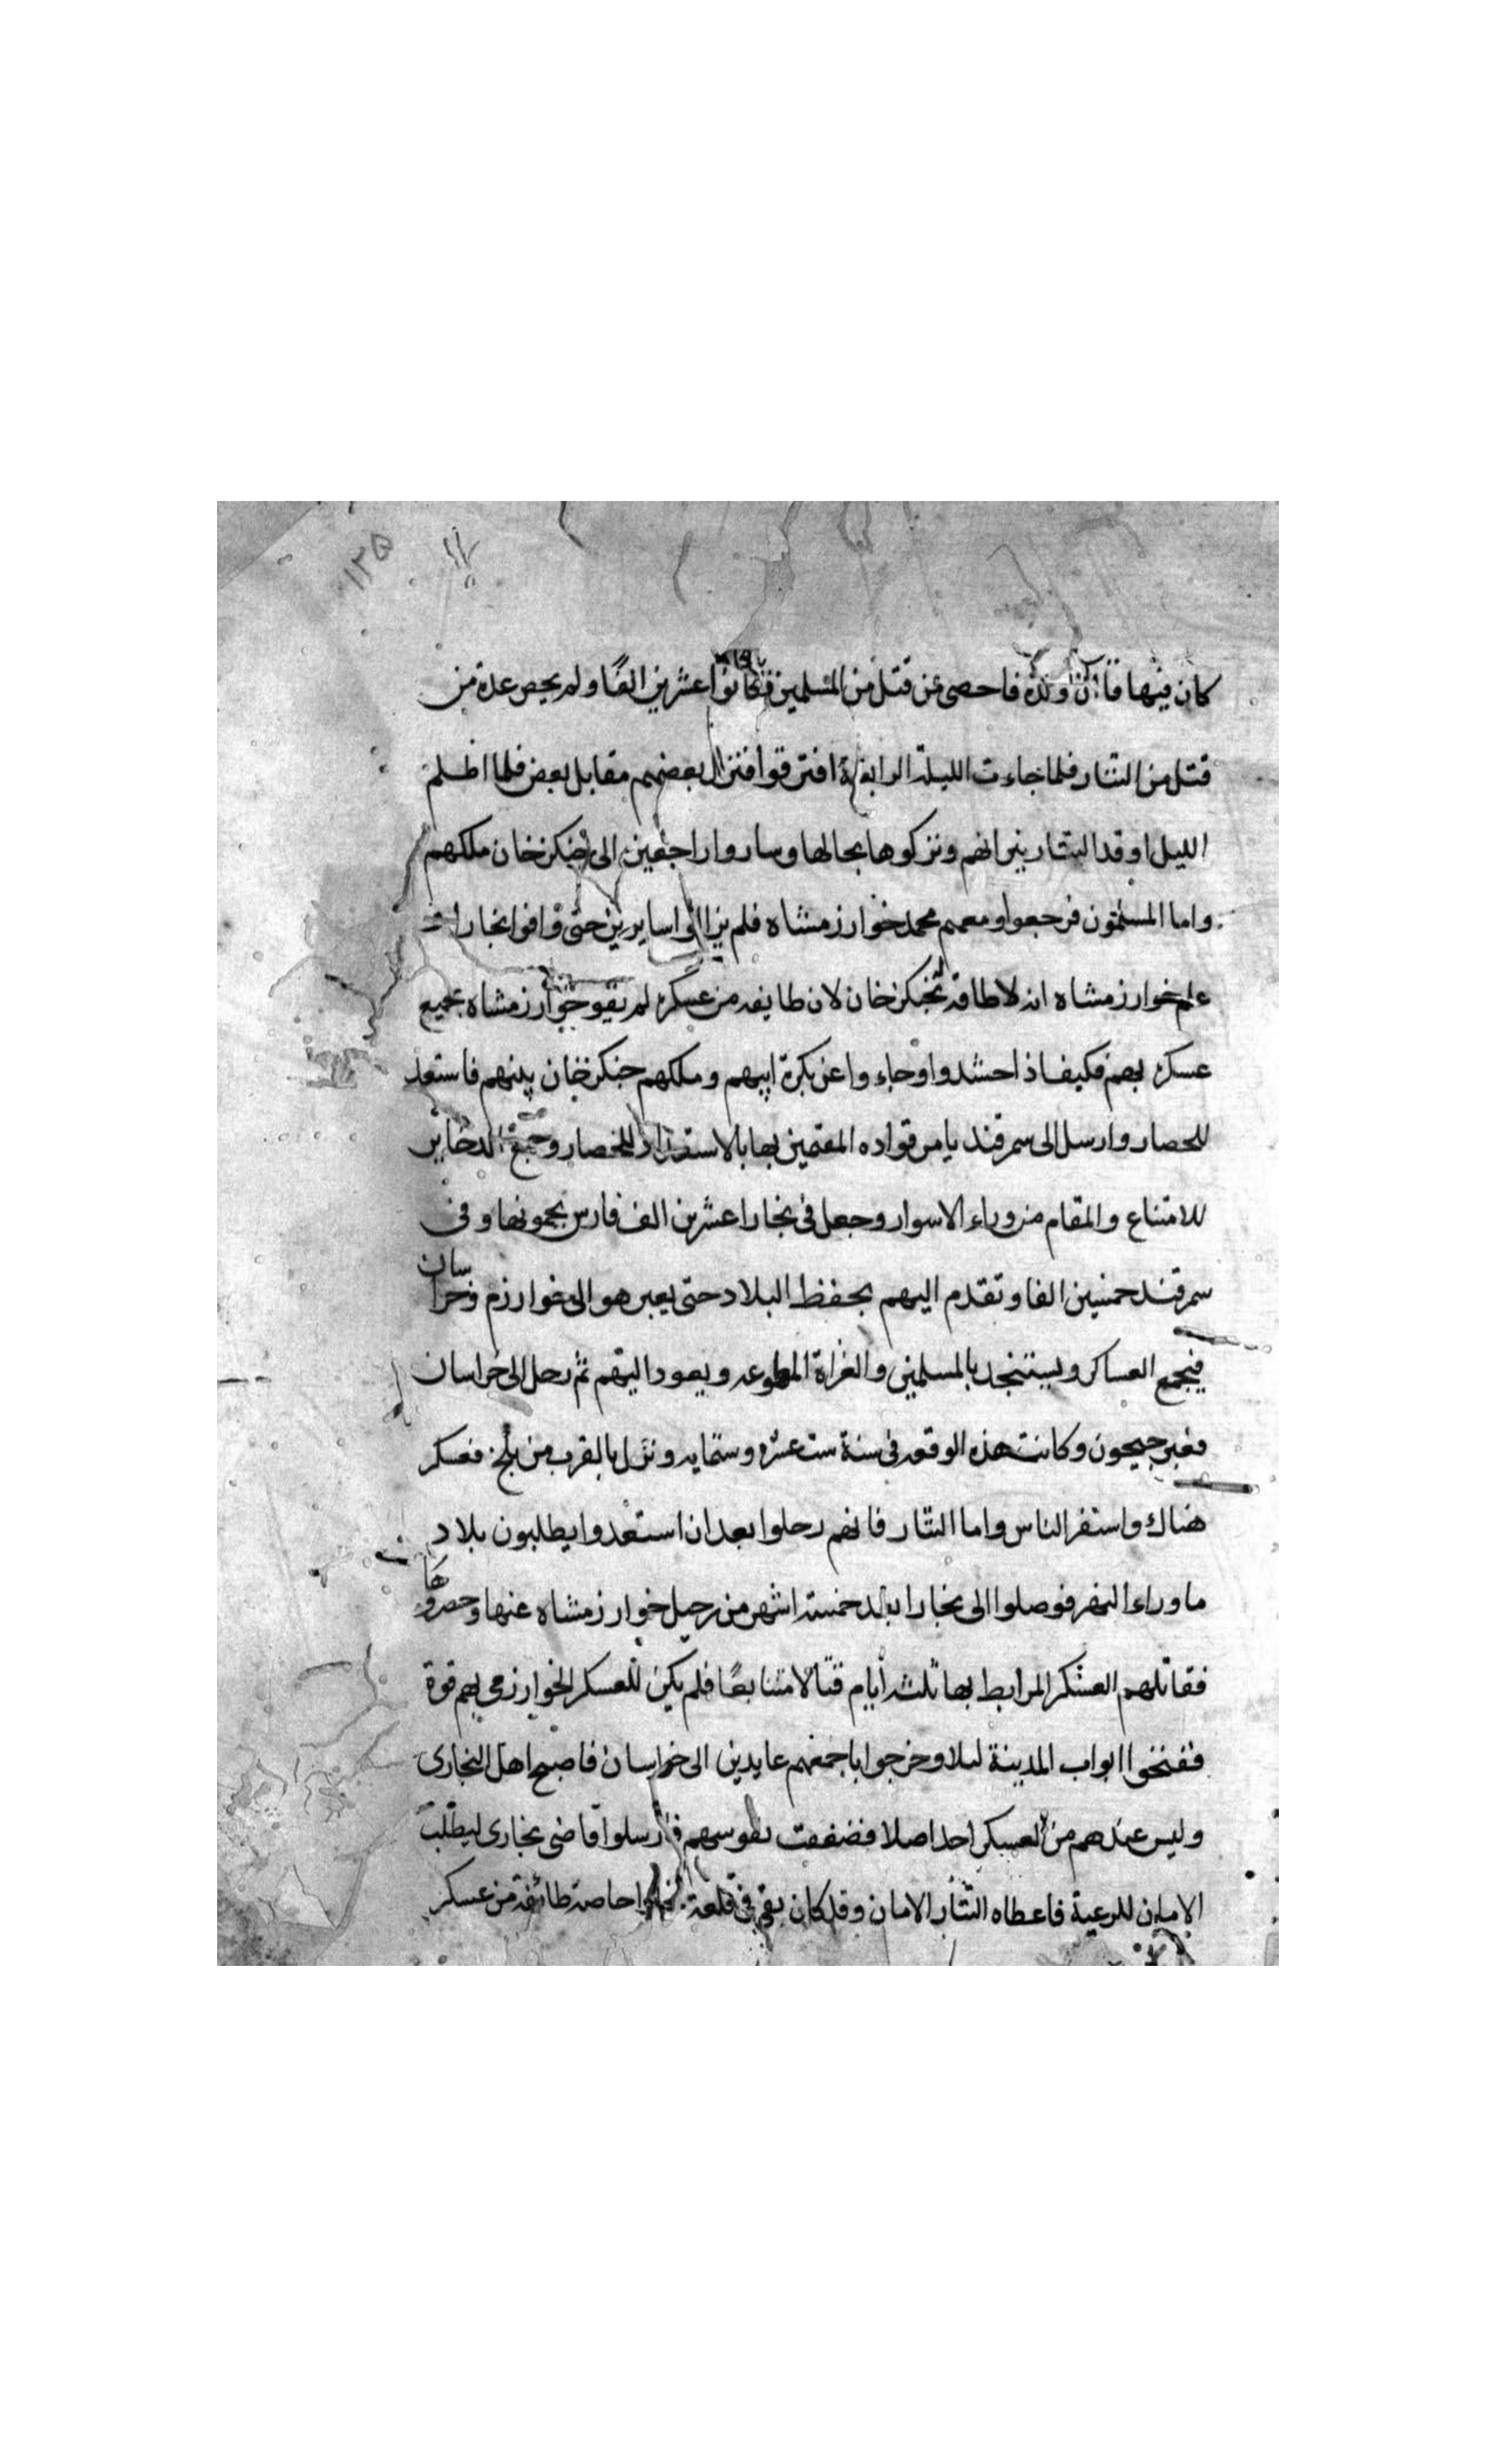 ١٢٥
كان فيها قاآن ولده فاحصى من قتل من المسلمين فكانوا عشرين الفا ولم يحص عدة من
قتل من التتار فلما جاءت الليلة الرابعة افترقوا فنزل بعضهم مقابل بعض فلما اظلم
الليل اوقد التتار نيرانهم وتركوها بحالها وساروا راجعين الى جنكزخان ملكهم
واما المسلمون فرجعوا ومعهم محمد خوارزمشاه فلم يزالوا سايرين حتى وافوا بخارا
علم خوارزمشاه انه لا طاقة بجنكزخان لان طايفه من عسكره لم يقو خوارزمشاه بجميع
عسكره بهم فكيف اذا حشدوا وجاءوا عن بكرة ابيهم وملكهم جنكزخان بينهم فاستعد
للحصار وارسل الى سمرقند يامر قواده المقيمين بها بالاستعداد للحصار وجمع الدخاير
للامتناع والمقام من وراء الاسوار وجعل في بخارا عشرين الف فارس يحمونها وفى
سمرقند خمسين الفا وتقدم اليهم بحفظ البلاد حتى يعبر هو الى خوارزم وخراسان
فيجمع العساكر ويستنجد بالمسلمين والغزاة المطوعه ويعود اليهم ثم رحل الى خراسان
فعبر جيحون وكانت هذه الوقعه فى سنة ست عشره وستمايه ونزل بالقرب من بلخ فعسكر
هناك واستنفر الناس واما التتار فانهم رحلوا بعد ان استعدوا يطلبون بلاد
ما وراء النهر فوصلوا الى بخارا بعد خمسة اشهر من رحيل خوارزمشاه عنها وحصروها
فقاتلهم العسكر المرابط بها ثلثه أيام قتالا متتابعًا فلم يكن للعسكر الخوارزمى بهم قوة
ففتحوا ابواب المدينة ليلا وخرجوا باجمعهم عايدين الى خراسان فاصبح اهل البخارى
وليس عندهم من العسكر احد اصلا فضعفت نفوسهم فارسلوا قاضى بخارى ليطلب
الامان للرعية فاعطاه التتار الامان وقد كان بقى فى قلعة بخارا خاصة طائفة من عسكر